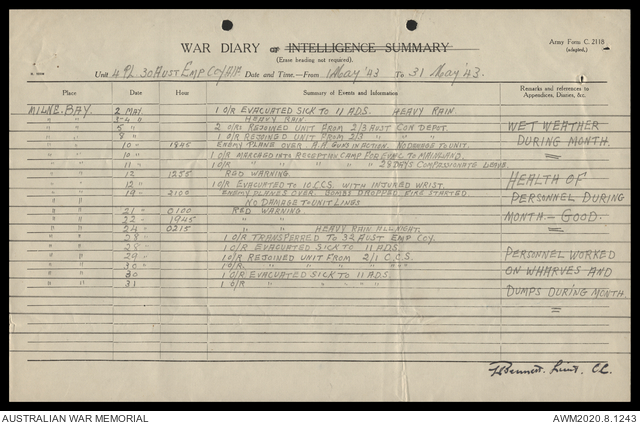 Army Form C. 2118
(adapted.)
WAR DIARY or INTELLIGENCE SUMMARY
(Erase heading not required).
Unit 4 PL 30 AUST EMP COY/AIF Date and Time.—From 1 May '43 To 31 May '43.
Place Date Hour Summary of Events and Information Remarks and references to Appendices, Diaries, &c.
MILNE BAY. 2 MAY 1 O/R EVACUATED SICK TO 11 ADS. HEAVY RAIN.
" " 3-4 " HEAVY RAIN.
" " 5 " 2 O/Rs REJOINED UNIT FROM 2/3 AUST CON DEPOT.
" " 8 " 1 O/R REJOINED UNIT FROM 2/3 " " "
" " 10 " 1845 ENEMY PLANE OVER A.A. GUNS IN ACTION. NO DAMAGE TO UNIT.
" " 10 " 1 O/R MARCHED INTO RECEPTION CAMP FOR TO MAINLAND.
" " 11 " 1 O/R " " " " 28 DAYS COMPASSIONATE LEAVE.
" " 12 1255 RED WARNING.
" " 12 " 1 O/R EVACUATED TO 10 C.C.S. WITH INJURED WRIST.
" " 19 " 2100 ENEMY PLANES OVER. BOMBS DROPPED. FIRE STARTED.
" " NO DAMAGE TO UNIT LINES
" " 21 " 0100 RED WARNING.
" " 22 " 1945 " "
" " 24 " 0215 " " HEAVY RAIN ALL NIGHT.
" " 28 " 1 O/R TRANSFERRED TO 32 AUST EMP COY.
" " 28 " 1 O/R EVACUATED SICK TO 11 ADS.
" " 29 " 1 O/R REJOINED UNIT FROM 2/1 C.C.S.
" " 30 " 1 O/R " " " " "
" " 30 1 O/R EVACUATED SICK TO 11 ADS.
" " 31 1 O/R " " " " "
WET WEATHER
DURING MONTH.
HEALTH OF
PERSONNEL DURING
MONTH — GOOD.
PERSONNEL WORKED
ON WHARVES AND
DUMPS DURING MONTH.
Bennett. Lieut.
AUSTRALIAN WAR MEMORIAL
AWM2020.8.1243